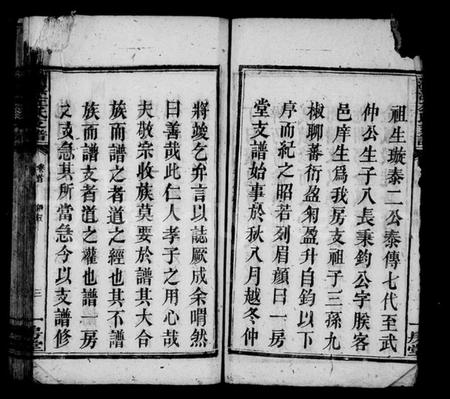 祖生璇泰二公泰傳七代至武
仲公生子八長秉鈞公字朕客
邑庠生爲我房支祖子三孫九
椒聊蕃衍盈匊盈升自鈞以下
序而紀之昭若列眉顔曰一房
堂支譜始事於秋八月越冬仲
將竣乞弁言以誌厥成余喟然
曰善哉此仁人孝子之用心哉
夫敬宗收族莫要於譜其大合
族而譜之者道之經也其不譜
族而譜支者道之權也譜一房
之支急其所當急今以支譜修